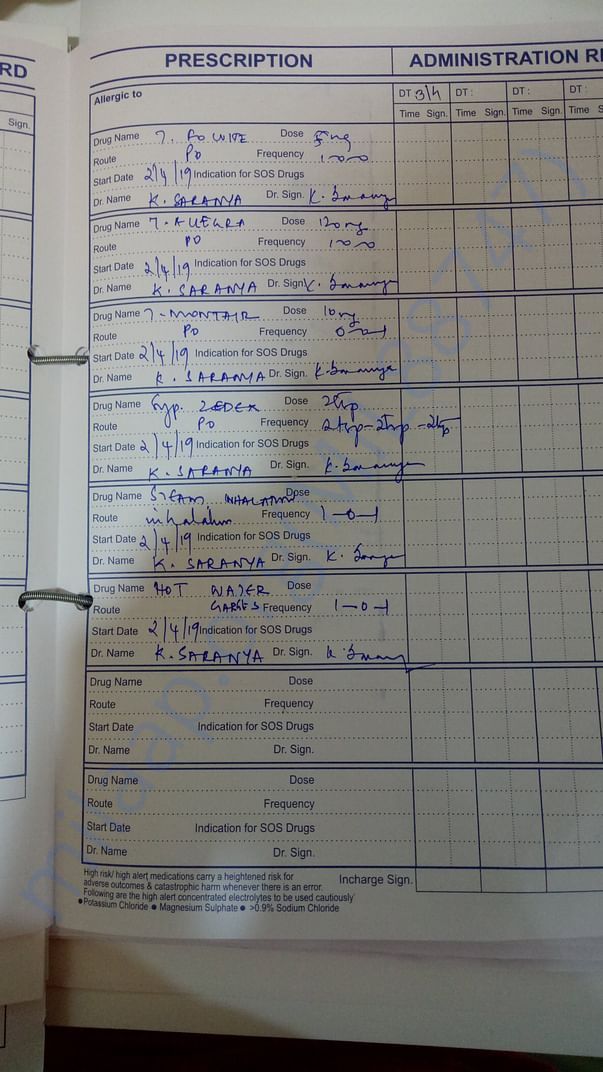 RD
PRESCRIPTION
ADMINISTRATION RE
Allergic to
DT 3/4 DT : DT : DT :
Sign.
Time Sign. Time Sign. Time Sign. Time S
Drug Name T. FOLVITE Dose 5mg
Route PO Frequency 1-0-0
Start Date 2/4/19 Indication for SOS Drugs
Dr. Name K. SARANYA Dr. Sign. K. Saranya
Drug Name T. ALLEGRA Dose 120mg
Route PO Frequency 1-0-0
Start Date 2/4/19 Indication for SOS Drugs
Dr. Name K. SARANYA Dr. Sign. K. Saranya
Drug Name T-MONTAIR Dose 10mg
Route PO Frequency 0-0-1
Start Date 2/4/19 Indication for SOS Drugs
Dr. Name K. SARANYA Dr. Sign. K. Saranya
Drug Name Syp. ZEDEX Dose 2tsp
Route PO Frequency 2tsp-2tsp-2tsp
Start Date 2/4/19 Indication for SOS Drugs
Dr. Name K. SARANYA Dr. Sign. K. Saranya
Drug Name STEAM INHALATION Dose
Route inhalation Frequency 1-0-1
Start Date 2/4/19 Indication for SOS Drugs
Dr. Name K. SARANYA Dr. Sign. K. Saranya
Drug Name HOT WATER Dose
Route GARGLES Frequency 1-0-1
Start Date 2/4/19 Indication for SOS Drugs
Dr. Name K. SARANYA Dr. Sign. K. Saranya
Drug Name Dose
Route Frequency
Start Date Indication for SOS Drugs
Dr. Name Dr. Sign.
Drug Name Dose
Route Frequency
Start Date Indication for SOS Drugs
Dr. Name Dr. Sign.
High risk/ high alert medications carry a heightened risk for
adverse outcomes & catastrophic harm whenever there is an error.
Following are the high alert concentrated electrolytes to be used cautiously
•Potassium Chloride • Magnesium Sulphate • >0.9% Sodium Chloride
Incharge Sign.